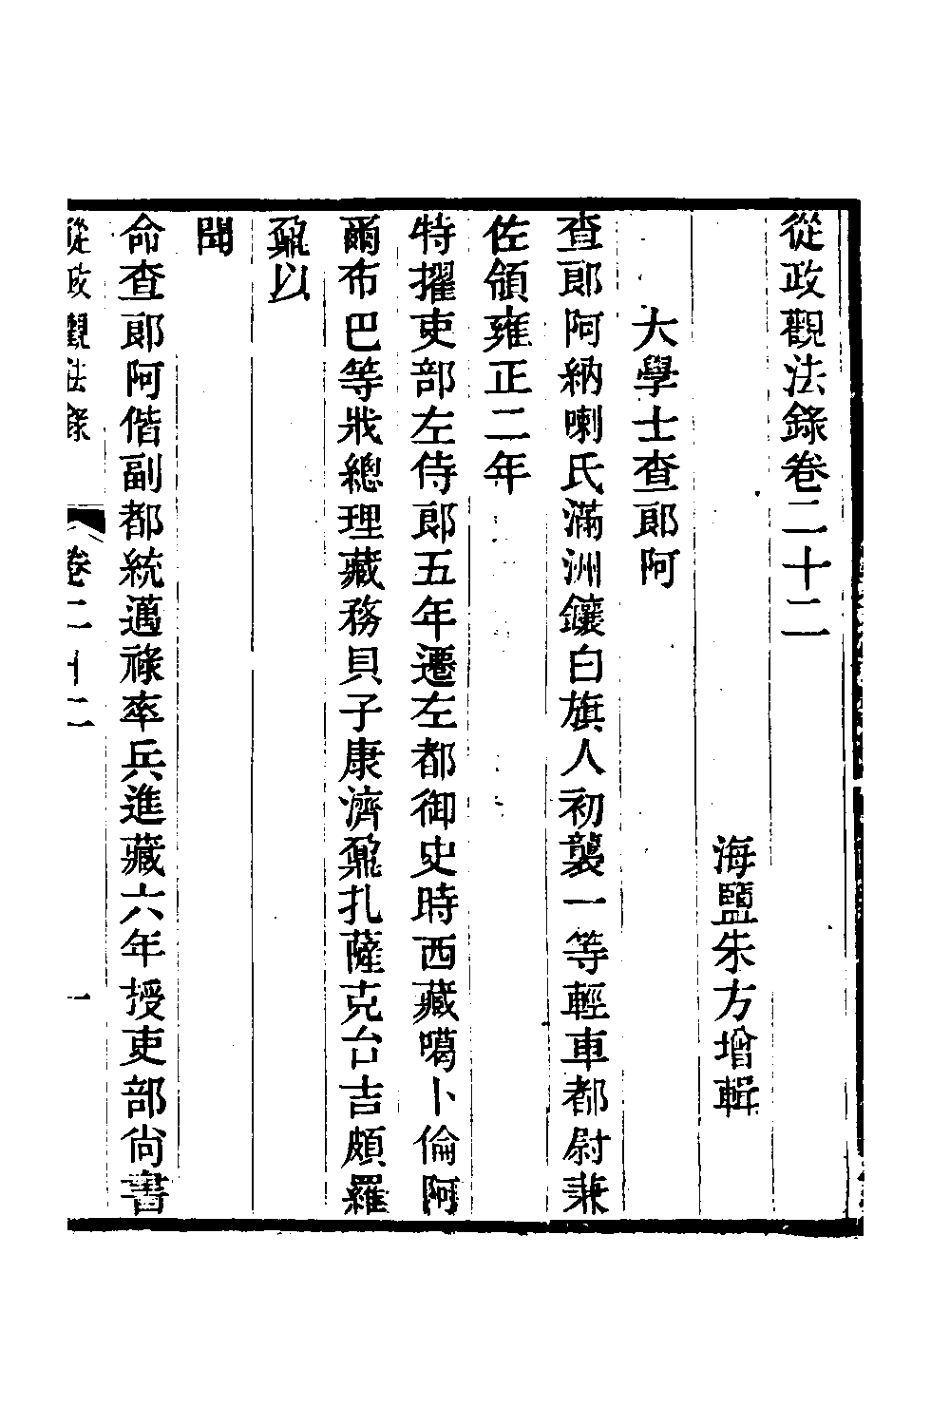 從政觀法錄卷二十二
海鹽朱方增輯
大學士查郎阿
查郎阿納喇氏滿洲鑲白旗人初襲一等輕車都尉兼
佐領雍正二年
特擢吏部左侍郎五年遷左都御史時西藏噶卜倫阿
爾布巴等戕總理藏務貝子康濟鼐扎薩克台吉頗羅
鼐以
聞
命查郎阿偕副都統邁祿率兵進藏六年授吏部尚書
從政觀法錄 卷二十二 一